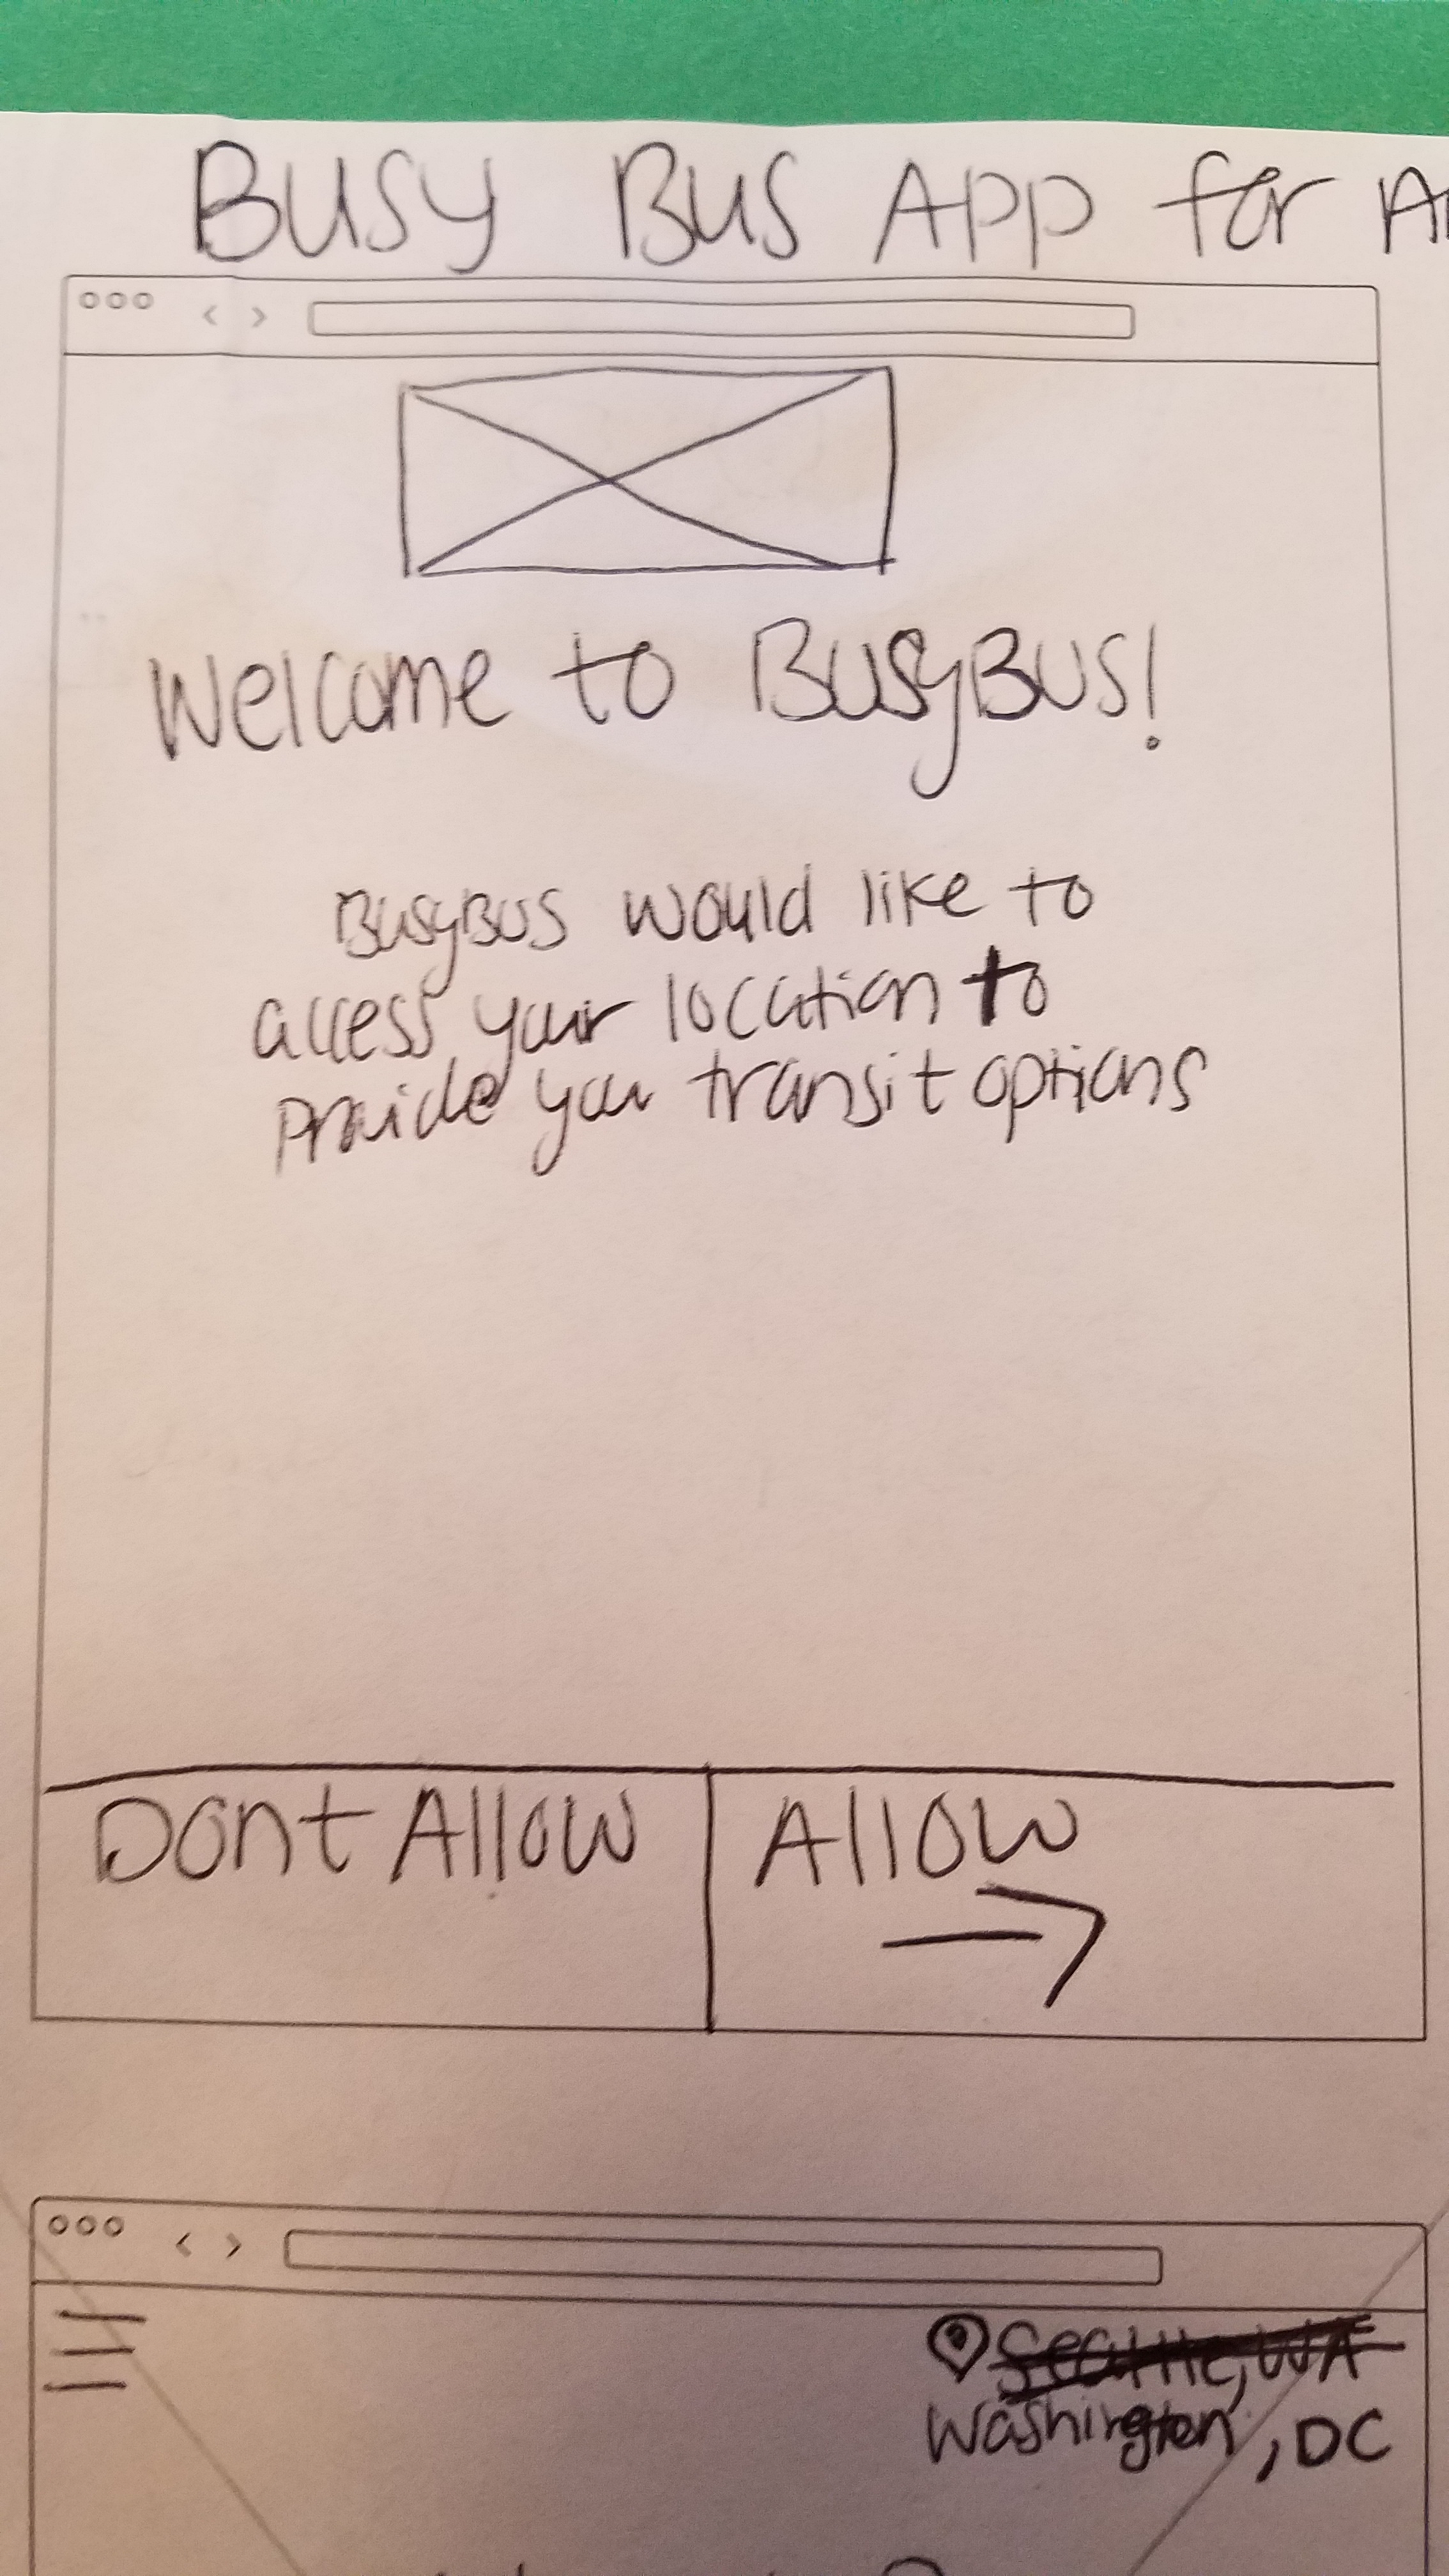 Busy Bus App for
Welcome to BusyBus!
BusyBus would like to
access your location to
provide you transit options
Dont Allow
Allow
Seattle, WA
Washington, DC